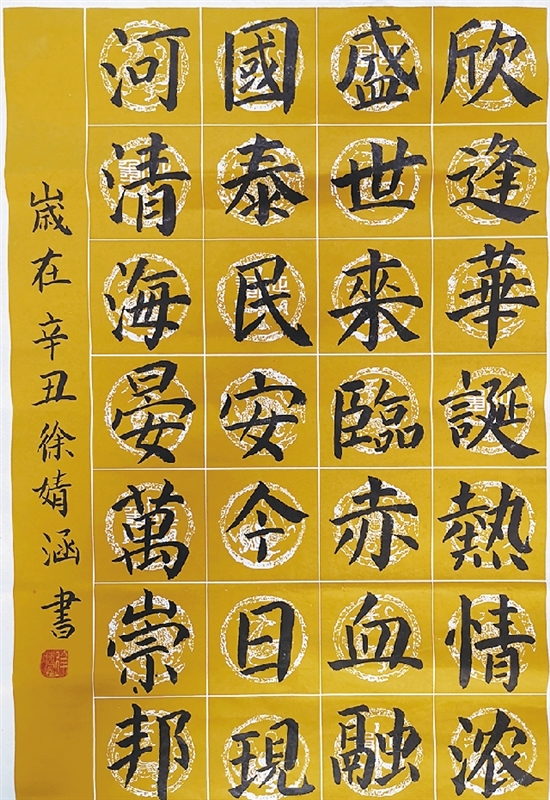 欣逢華誕熱情浓
盛世來臨赤血融
國泰民安今日現
河清海晏萬崇邦
歲在辛丑徐婧涵書